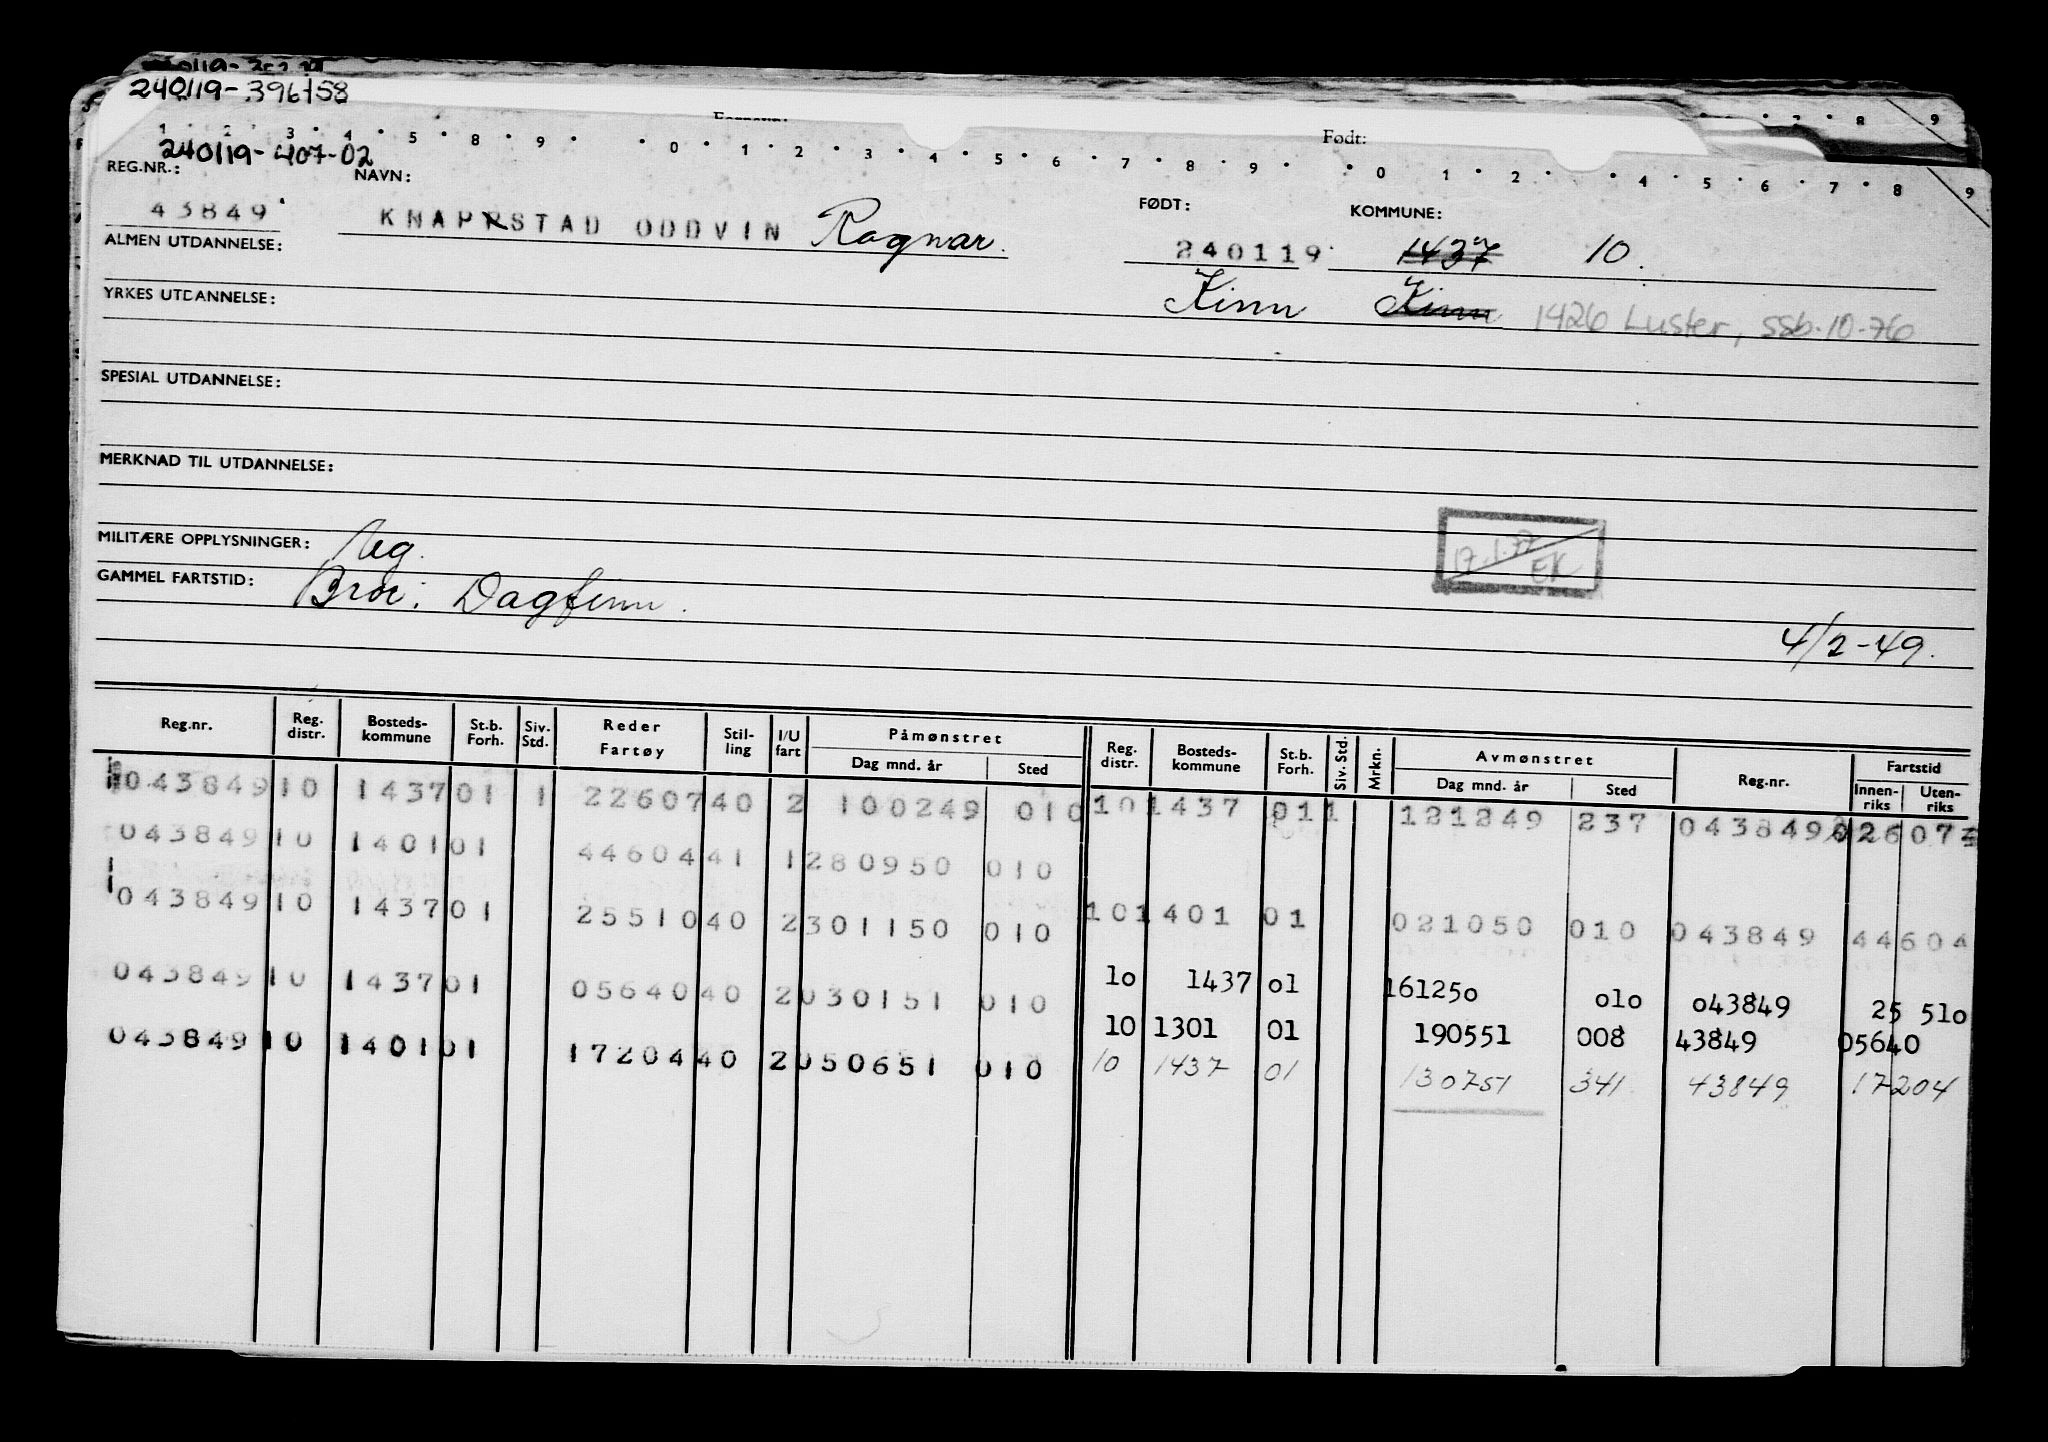 240119-396158
Fornavn:
Født:
1 2 3 4 5 8 9 0 1 2 3 4 5 6 7 8 9 0 1 2 4 5 6 7 8 9
240119-407-02
REG.NR.: NAVN: FØDT: KOMMUNE:
43849 KNAPRSTAD ODDVIN Ragnar 240119 1437 10.
ALMEN UTDANNELSE:
Kinn Kinn 1426 Luster, ssb-10-76
YRKES UTDANNELSE:
SPESIAL UTDANNELSE:
MERKNAD TIL UTDANNELSE:
MILITÆRE OPPLYSNINGER:
17.1.77 EK
GAMMEL FARTSTID: Bror: Dagfinn.
4/2-49.
Reg.nr. Reg. distr. Bosteds-kommune St.b. Forh. Siv. Std. Reder Fartøy Stil-ling I/U fart Påmønstret Dag mnd. år Sted Reg. distr. Bosteds-kommune St.b. Forh. Siv. Std. Mrkn. Avmønstret Dag mnd. år Sted Reg.nr. Fartstid Innen-riks Uten-riks
043849 10 1437 01 1 22607 40 2 100249 010 10 1437 01 1 121249 237 043849 22607
043849 10 1401 01 44604 41 1 280950 010
043849 10 1437 01 25510 40 2 301150 010 10 1401 01 021050 010 043849 44604
043849 10 1437 01 05640 40 2 030151 010 10 1437 01 161250 010 043849 25 510
043849 10 1401 01 17204 40 2 050651 010 10 1301 01 190551 008 43849 05640
10 1437 01 130751 341 43849 17204